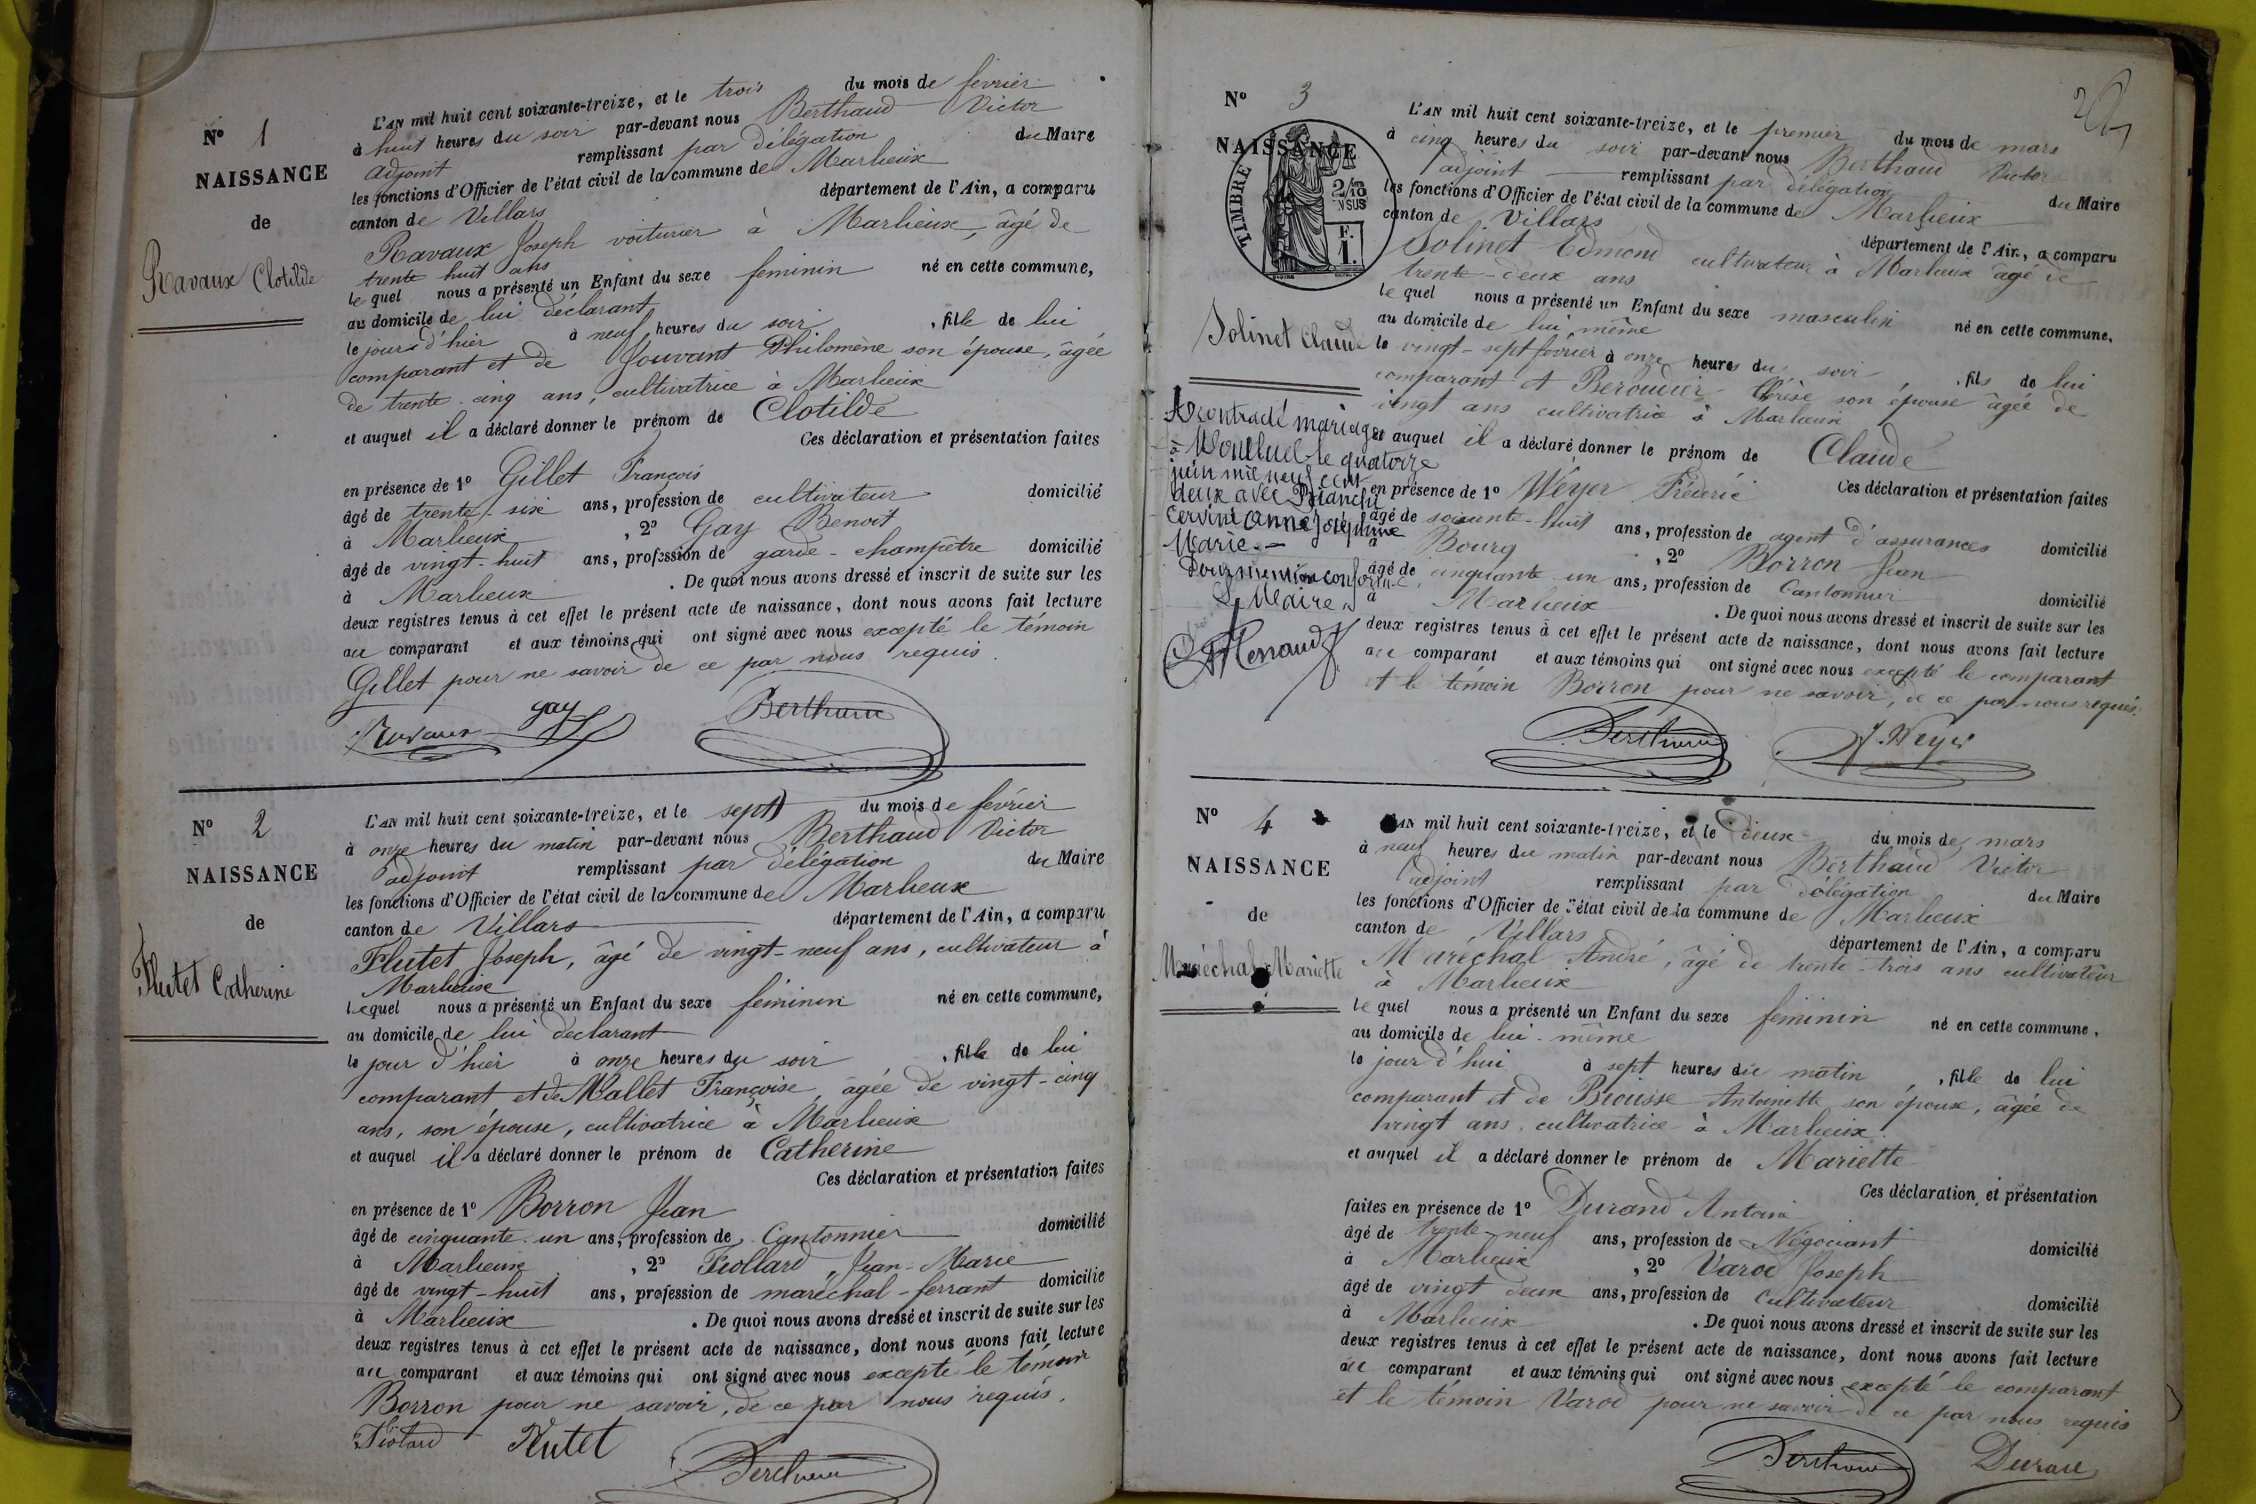 N° 1
NAISSANCE
de
Ravaux Clotilde
L'AN mil huit cent soixante-treize, et le trois du mois de février
à huit heures du soir par-devant nous Berthaud Victor
adjoint remplissant par délégation du Maire
les fonctions d'Officier de l'état civil de la commune de Marlieux
canton de Villars département de l'Ain, a comparu
Ravaux Joseph voiturier à Marlieux, âgé de
trente huit ans
le quel nous a présenté un Enfant du sexe féminin né en cette commune,
au domicile de lui déclarant
le jour d'hier à neuf heures du soir, fille de lui
comparant et de Jouvant Philomène son épouse, âgée
de trente-cinq ans, cultivatrice à Marlieux
et auquel il a déclaré donner le prénom de Clotilde
Ces déclaration et présentation faites
en présence de 1° Gillet François
âgé de trente-six ans, profession de cultivateur domicilié
à Marlieux, 2° Gay Benoit
âgé de vingt-huit ans, profession de garde-champêtre domicilié
à Marlieux. De quoi nous avons dressé et inscrit de suite sur les
deux registres tenus à cet effet le présent acte de naissance, dont nous avons fait lecture
au comparant et aux témoins qui ont signé avec nous excepté le témoin
Gillet pour ne savoir de ce par nous requis.
Ravaux Gay Berthaud
N° 2
NAISSANCE
de
Flutet Catherine
L'AN mil huit cent soixante-treize, et le sept du mois de février
à onze heures du matin par-devant nous Berthaud Victor
adjoint remplissant par délégation du Maire
les fonctions d'Officier de l'état civil de la commune de Marlieux
canton de Villars département de l'Ain, a comparu
Flutet Joseph, âgé de vingt-neuf ans, cultivateur à
Marlieux
lequel nous a présenté un Enfant du sexe féminin né en cette commune,
au domicile de lui déclarant
le jour d'hier à onze heures du soir, fille de lui
comparant et de Mallet Françoise, âgée de vingt-cinq
ans, son épouse, cultivatrice à Marlieux
et auquel il a déclaré donner le prénom de Catherine
Ces déclaration et présentation faites
en présence de 1° Borron Jean
âgé de cinquante-un ans, profession de Cantonnier domicilié
à Marlieux, 2° Fiollard, Jean-Marie
âgé de vingt-huit ans, profession de maréchal-ferrant domicilié
à Marlieux. De quoi nous avons dressé et inscrit de suite sur les
deux registres tenus à cet effet le présent acte de naissance, dont nous avons fait lecture
au comparant et aux témoins qui ont signé avec nous excepté le témoin
Borron pour ne savoir, de ce par nous requis.
Fiolard Flutet Berthaud
N° 3
NAISSANCE
TIMBRE
2/10
EN SUS
F.
1.
Solinet Claude
A contracté mariage
à Montluel le quatorze
juin mil neuf cent
deux avec Bianchi
Cervini Anna Joséphine
Marie.-
Dont mention conforme
Le Maire
L'AN mil huit cent soixante-treize, et le premier du mois de mars
à cinq heures du soir par-devant nous Berthaud Victor
adjoint remplissant par délégation du Maire
les fonctions d'Officier de l'état civil de la commune de Marlieux
canton de Villars département de l'Ain, a comparu
Solinet Edmond cultivateur à Marlieux âgé de
trente-deux ans
le quel nous a présenté un Enfant du sexe masculin né en cette commune,
au domicile de lui même
le vingt-sept février à onze heures du soir, fils de lui
comparant et Beroudier Thérèse son épouse âgée de
vingt ans cultivatrice à Marlieux
et auquel il a déclaré donner le prénom de Claude
Ces déclaration et présentation faites
en présence de 1° Weyer Frédéric
âgé de soixante-huit ans, profession de agent d'assurances domicilié
à Bourg, 2° Borron Jean
âgé de cinquante-un ans, profession de Cantonnier domicilié
à Marlieux. De quoi nous avons dressé et inscrit de suite sur les
deux registres tenus à cet effet le présent acte de naissance, dont nous avons fait lecture
au comparant et aux témoins qui ont signé avec nous excepté le comparant
et le témoin Borron pour ne savoir, de ce par nous requis.
Berthaud F. Weyer
N° 4
NAISSANCE
de
Maréchal Mariette
L'AN mil huit cent soixante-treize, et le deux du mois de mars
à neuf heures du matin par-devant nous Berthaud Victor
adjoint remplissant par délégation du Maire
les fonctions d'Officier de l'état civil de la commune de Marlieux
canton de Villars département de l'Ain, a comparu
Maréchal André, âgé de trente-trois ans cultivateur
à Marlieux
le quel nous a présenté un Enfant du sexe féminin né en cette commune,
au domicile de lui-même
le jour d'hui à sept heures du matin, fille de lui
comparant et de Brousse Antoinette son épouse, âgée de
vingt ans, cultivatrice à Marlieux
et auquel il a déclaré donner le prénom de Mariette
Ces déclaration et présentation
faites en présence de 1° Durand Antoine
âgé de trente-neuf ans, profession de Négociant domicilié
à Marlieux, 2° Varod Joseph
âgé de vingt deux ans, profession de cultivateur domicilié
à Marlieux. De quoi nous avons dressé et inscrit de suite sur les
deux registres tenus à cet effet le présent acte de naissance, dont nous avons fait lecture
au comparant et aux témoins qui ont signé avec nous excepté le comparant
et le témoin Varod pour ne savoir de ce par nous requis
Berthaud Durand